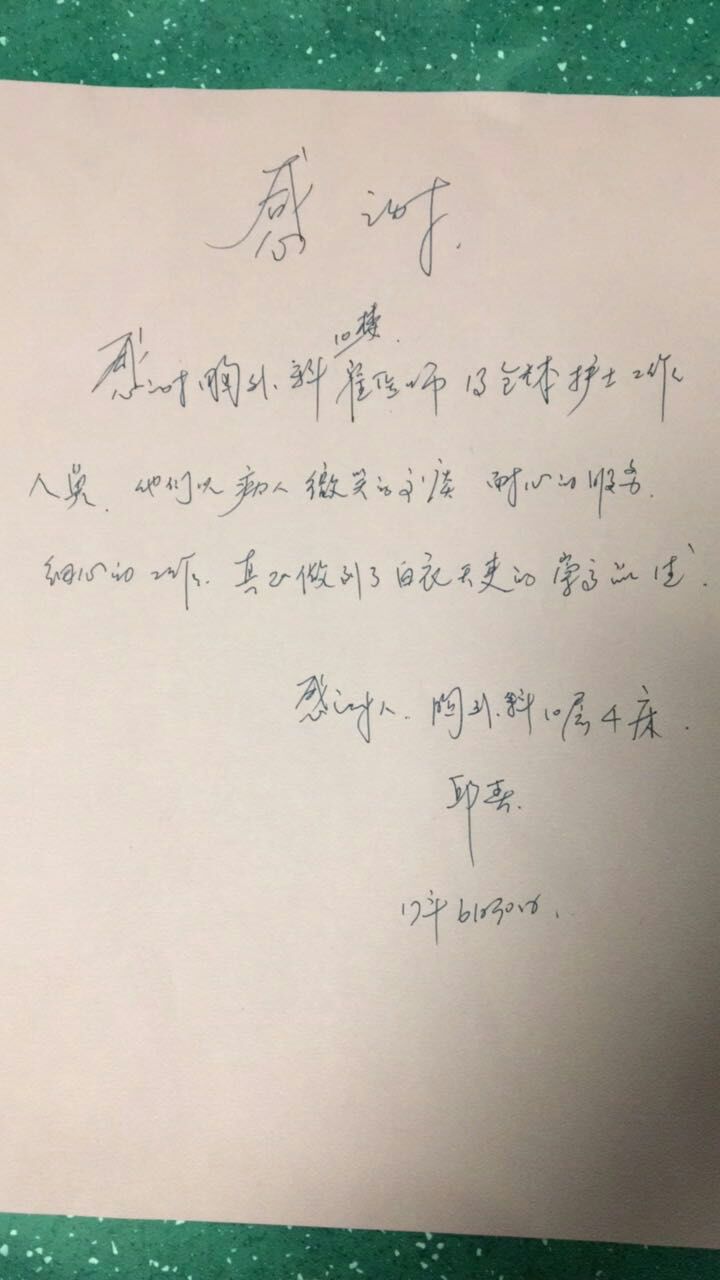 感谢.
10楼.
感谢胸外科崔医师及全体护士工作
人员. 他们以病人微笑的交谈 耐心的服务.
细心的工作. 真正做到了白衣天使的崇高品德.
感谢人. 胸外.科10层4床.
邱春.
17年6月30日.